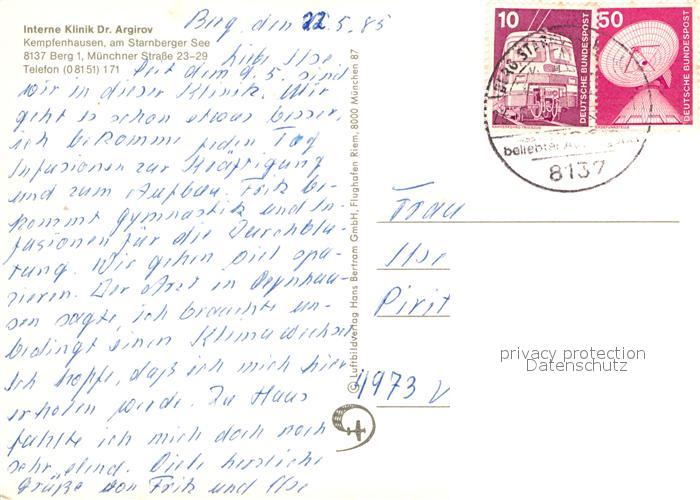 Interne Klinik Dr. Argirov
Kempfenhausen, am Starnberger See
8137 Berg 1, Münchner Straße 23–29
Telefon (0 81 51) 171
Berg, den 22.5.85
Liebe Ilse
Seit dem 9.5. sind
wir in dieser Klinik. Mir
geht es schon etwas besser,
ich bekomme jeden Tag
Infusionen zur Kräftigung
und zum Aufbau. Fritz be-
kommt gymnastik und In-
fusionen für die Durchblu-
tung. Wir gehen viel spa-
zieren. Der Arzt in Oeynhau-
sen sagte, ich brauchte un-
bedingt einen Klimawechsel
Ich hoffe, daß ich mich hier
erholen werde. Zu Haus
fühlte ich mich doch noch
sehr elend. Viele herzliche
Grüße von Fritz und Ilse
© Luftbildverlag Hans Bertram GmbH, Flughafen Riem, 8000 München 87
10
DEUTSCHE BUNDESPOST
50
DEUTSCHE BUNDESPOST
BERG, STARNB
beliebter
8137
Frau
Ilse
Pirit
4973 V
privacy protection
Datenschutz